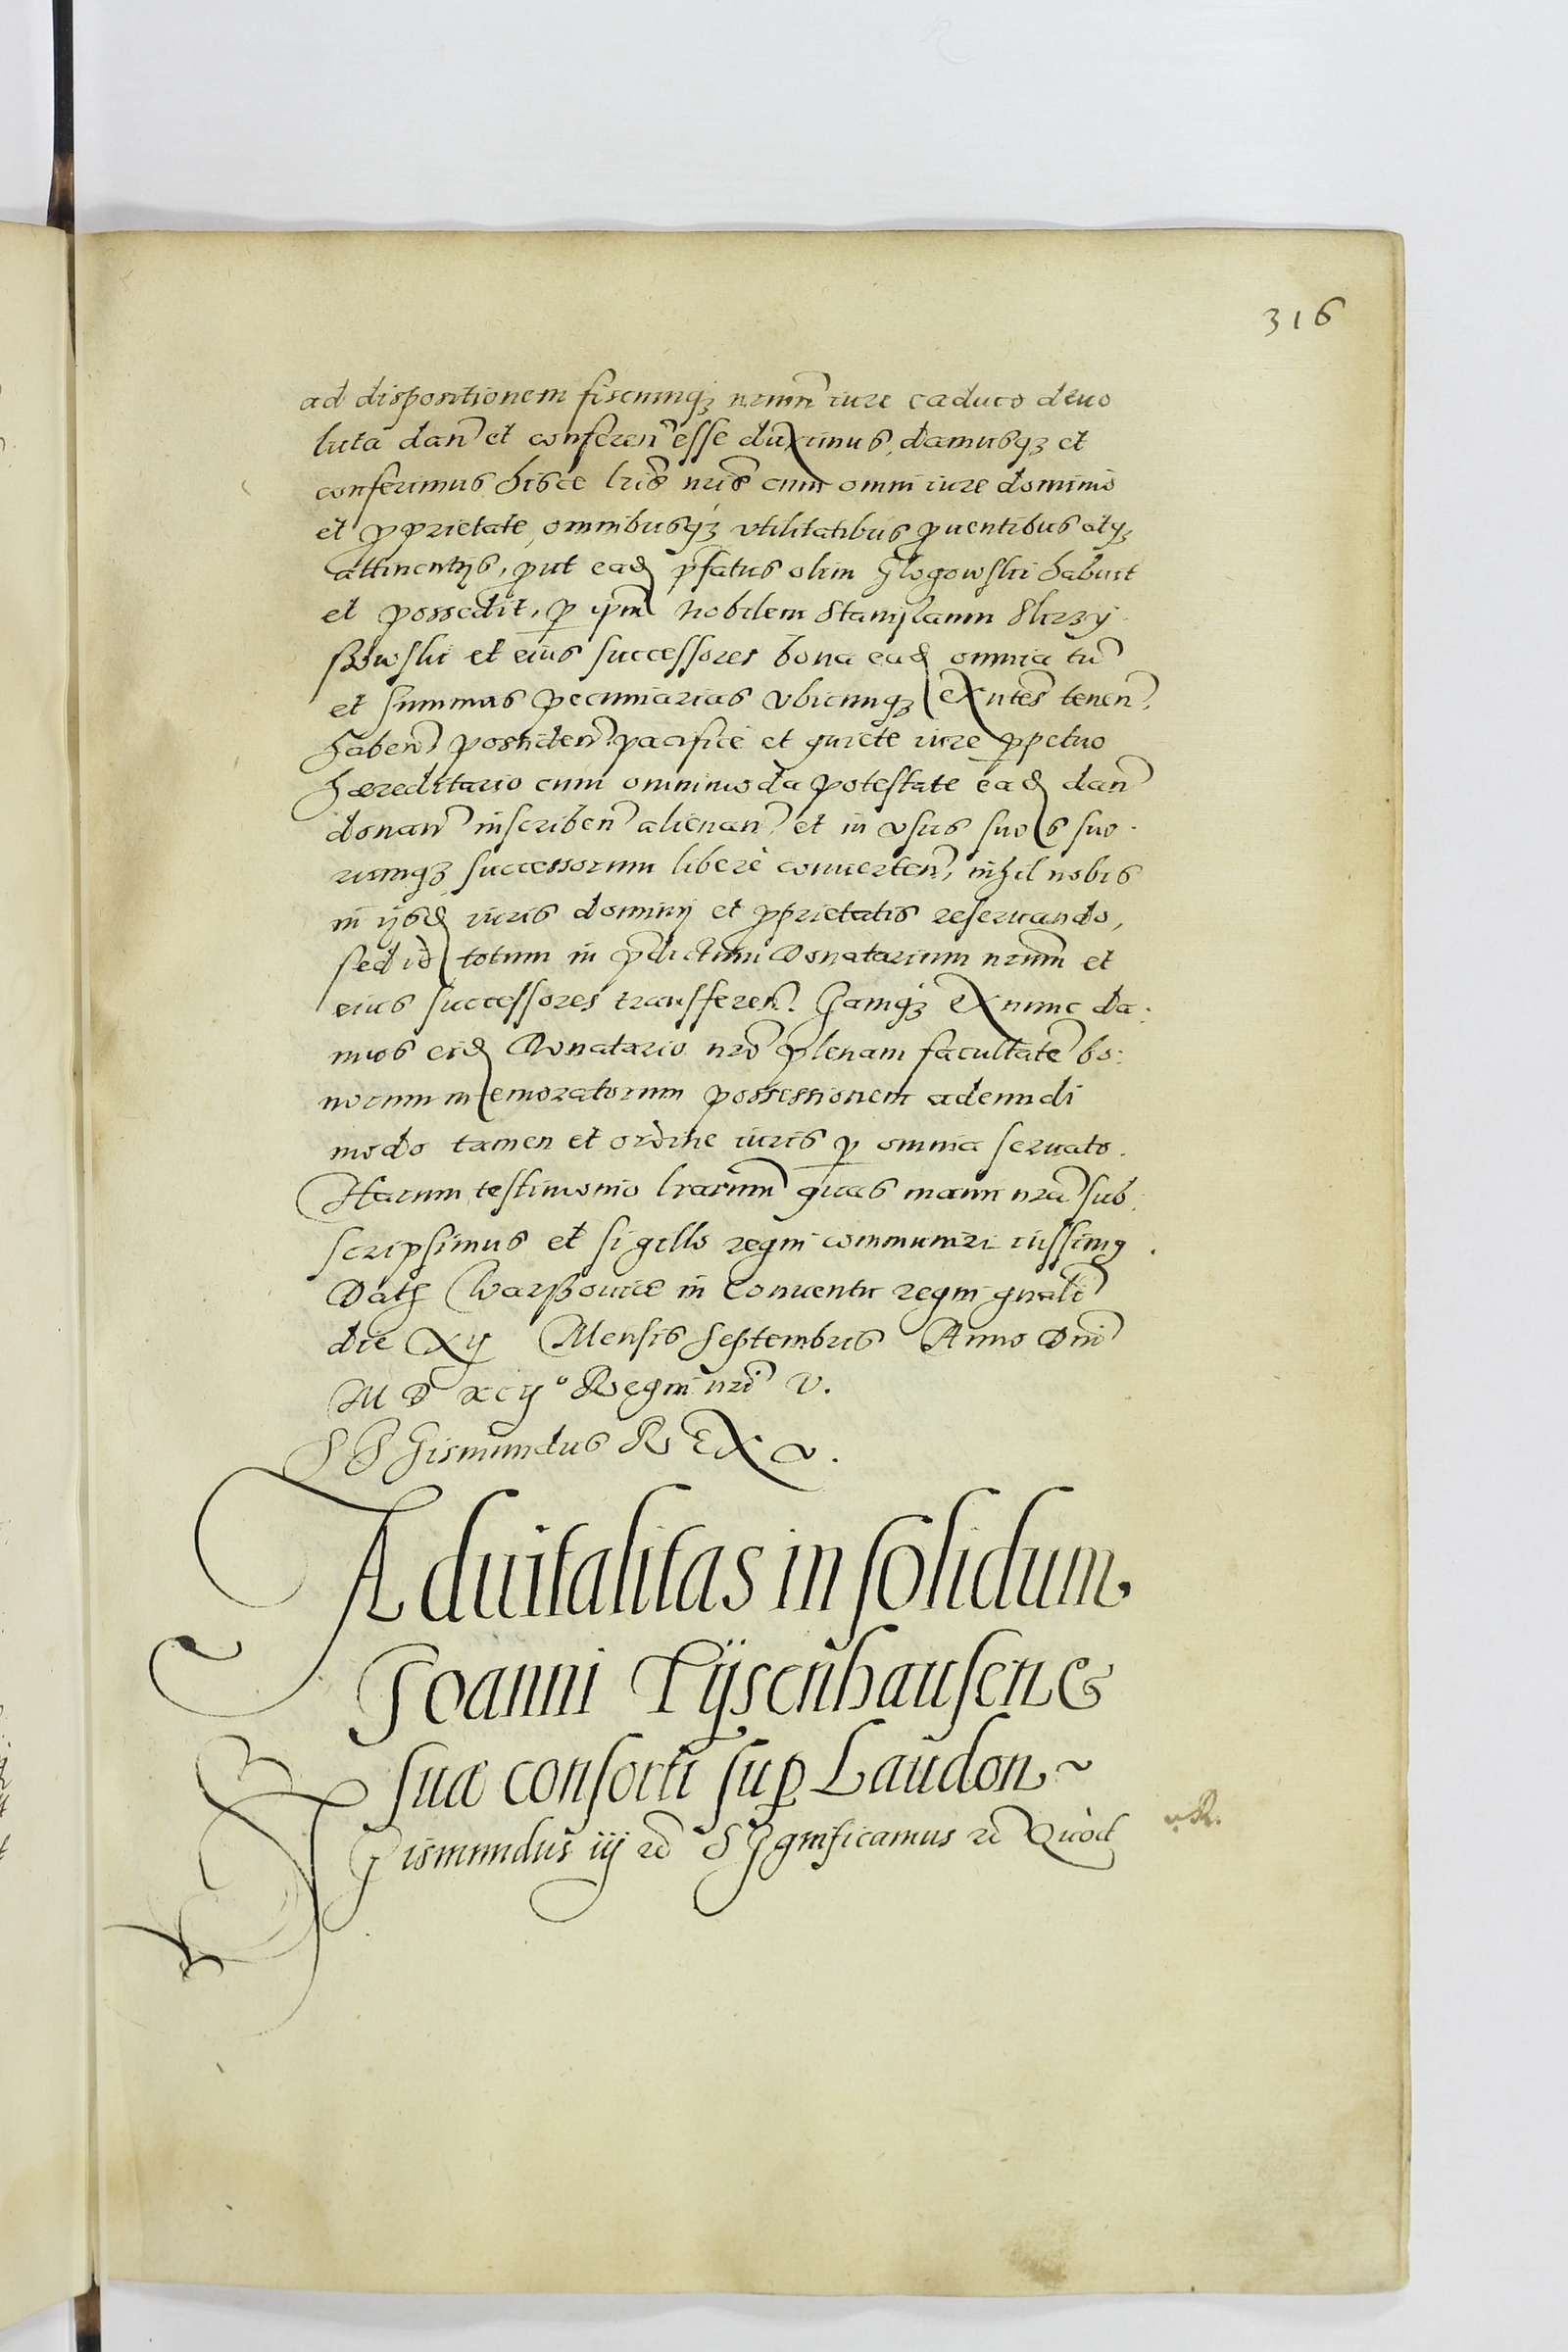 316
ad dispositionem fiscumq₃ nrum̃ iure caduco deuo
luta dan̄ et conferen̄ esse duximus, damusq₃ et
conferimus hisce lris̃ nris̃ cum omni iure dominio
et proprietate, omnibusq₃ vtilitatibus prouentibus atq₃
attinentijs, prout ead p̃fatus olim Glogowski habuit
et possedit, p ip̃m Nobilem Stanislaum
et eius successores bona ead omnia tũ
et summas pecuniarias vbicunq₃ exn̄tes tenen̄,
haben̄ possiden̄ pacificè et quietè iure ppetuo
hæreditario cum omnimoda potestate ead dan̄
donan̄ inscriben̄ alienan̄, et in vsus suos suo-
rumq₃ successorum liberè conuerten̄, nihil nobis
in ijsd iuris dominij et proprietatis reseruando,
sed id totum in p̃dictum Donatarium nrum̃ et
eius successores transferen̄. Iamq₃ ex nunc da:
mus eid Donatario nrõ plenam facultatẽ bo:
norum memoratorum possessionem adeundi
modo tamen et ordine iuris p omnia seruato.
Harum testimonio lrarum̃ quas manu nrã sub:
scripsimus et sigillo regni communiri iussimus.
Dat Warßouiæ in Conuentu regni gnali̇̃
die xij Mensis Septembris Anno Dnĩ
M D xcijº Regni nrĩ V.
Sigismundus REX
Aduitalitas in solidum
Joanni Tÿsenhausen &
suæ consorti sup Laudon
Sigismundus iij rc̃ Significamus rc̃ Quod